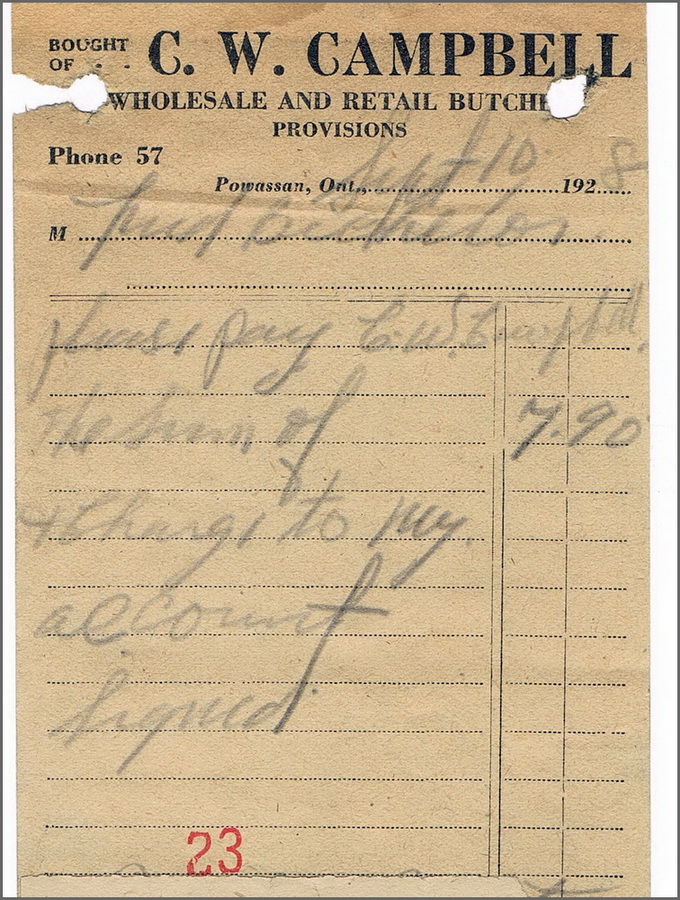 BOUGHT OF . . C. W. CAMPBELL
WHOLESALE AND RETAIL BUTCHE
PROVISIONS
Phone 57
Powassan, Ont., Sept 10 1928
M Fred
please pay C.W. Campbell.
the sum of 7.90
& charge to my
account
Signed.
23